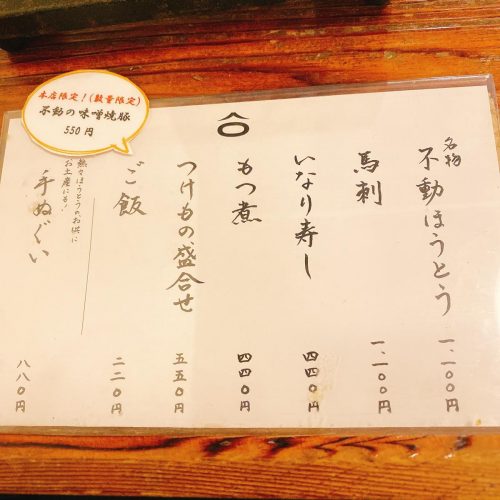 名物
不動ほうとう 一、一〇〇円
馬刺 一、一〇〇円
いなり寿し 四四〇円
もつ煮 四四〇円
つけもの盛合せ 五五〇円
ご飯 二二〇円
熱々ほうとうのお供に
お土産にも!
手ぬぐい 八八〇円
本店限定!(数量限定)
不動の味噌焼豚
550円